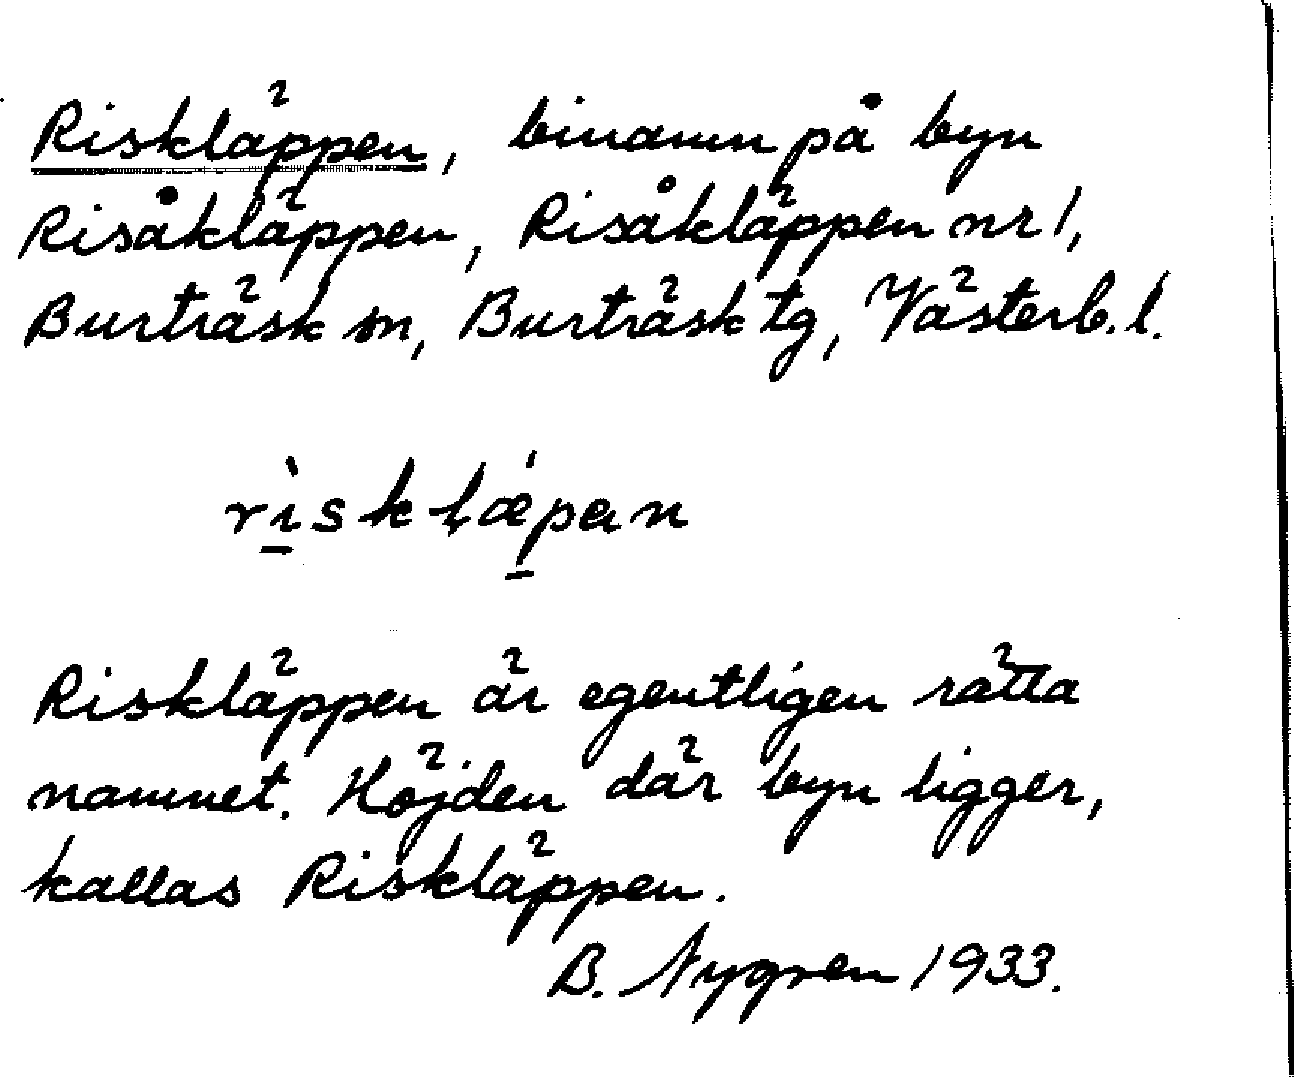 Riskläppen, binamn på byn
Risåkläppen, Risåkläppen nr 1,
Burträsk sn, Burträsk tg, Västerb. l.
rìsklǽpan
Riskläppen är egentligen rätta
namnet. Höjden där byn ligger,
kallas Riskläppen.
B. Nygren 1933.